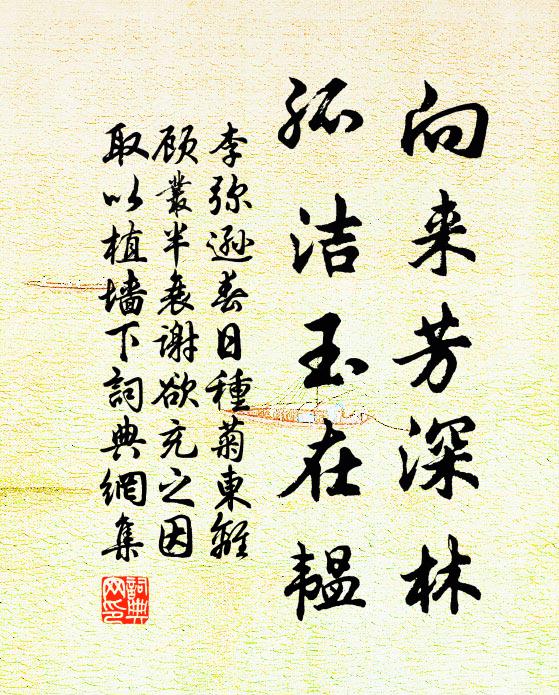 向来芳深林
孤洁玉在韫
李弥逊春日種菊東籬
顾叢半衰谢欲充之因
取以植墙下詞典網集
詞典
网印